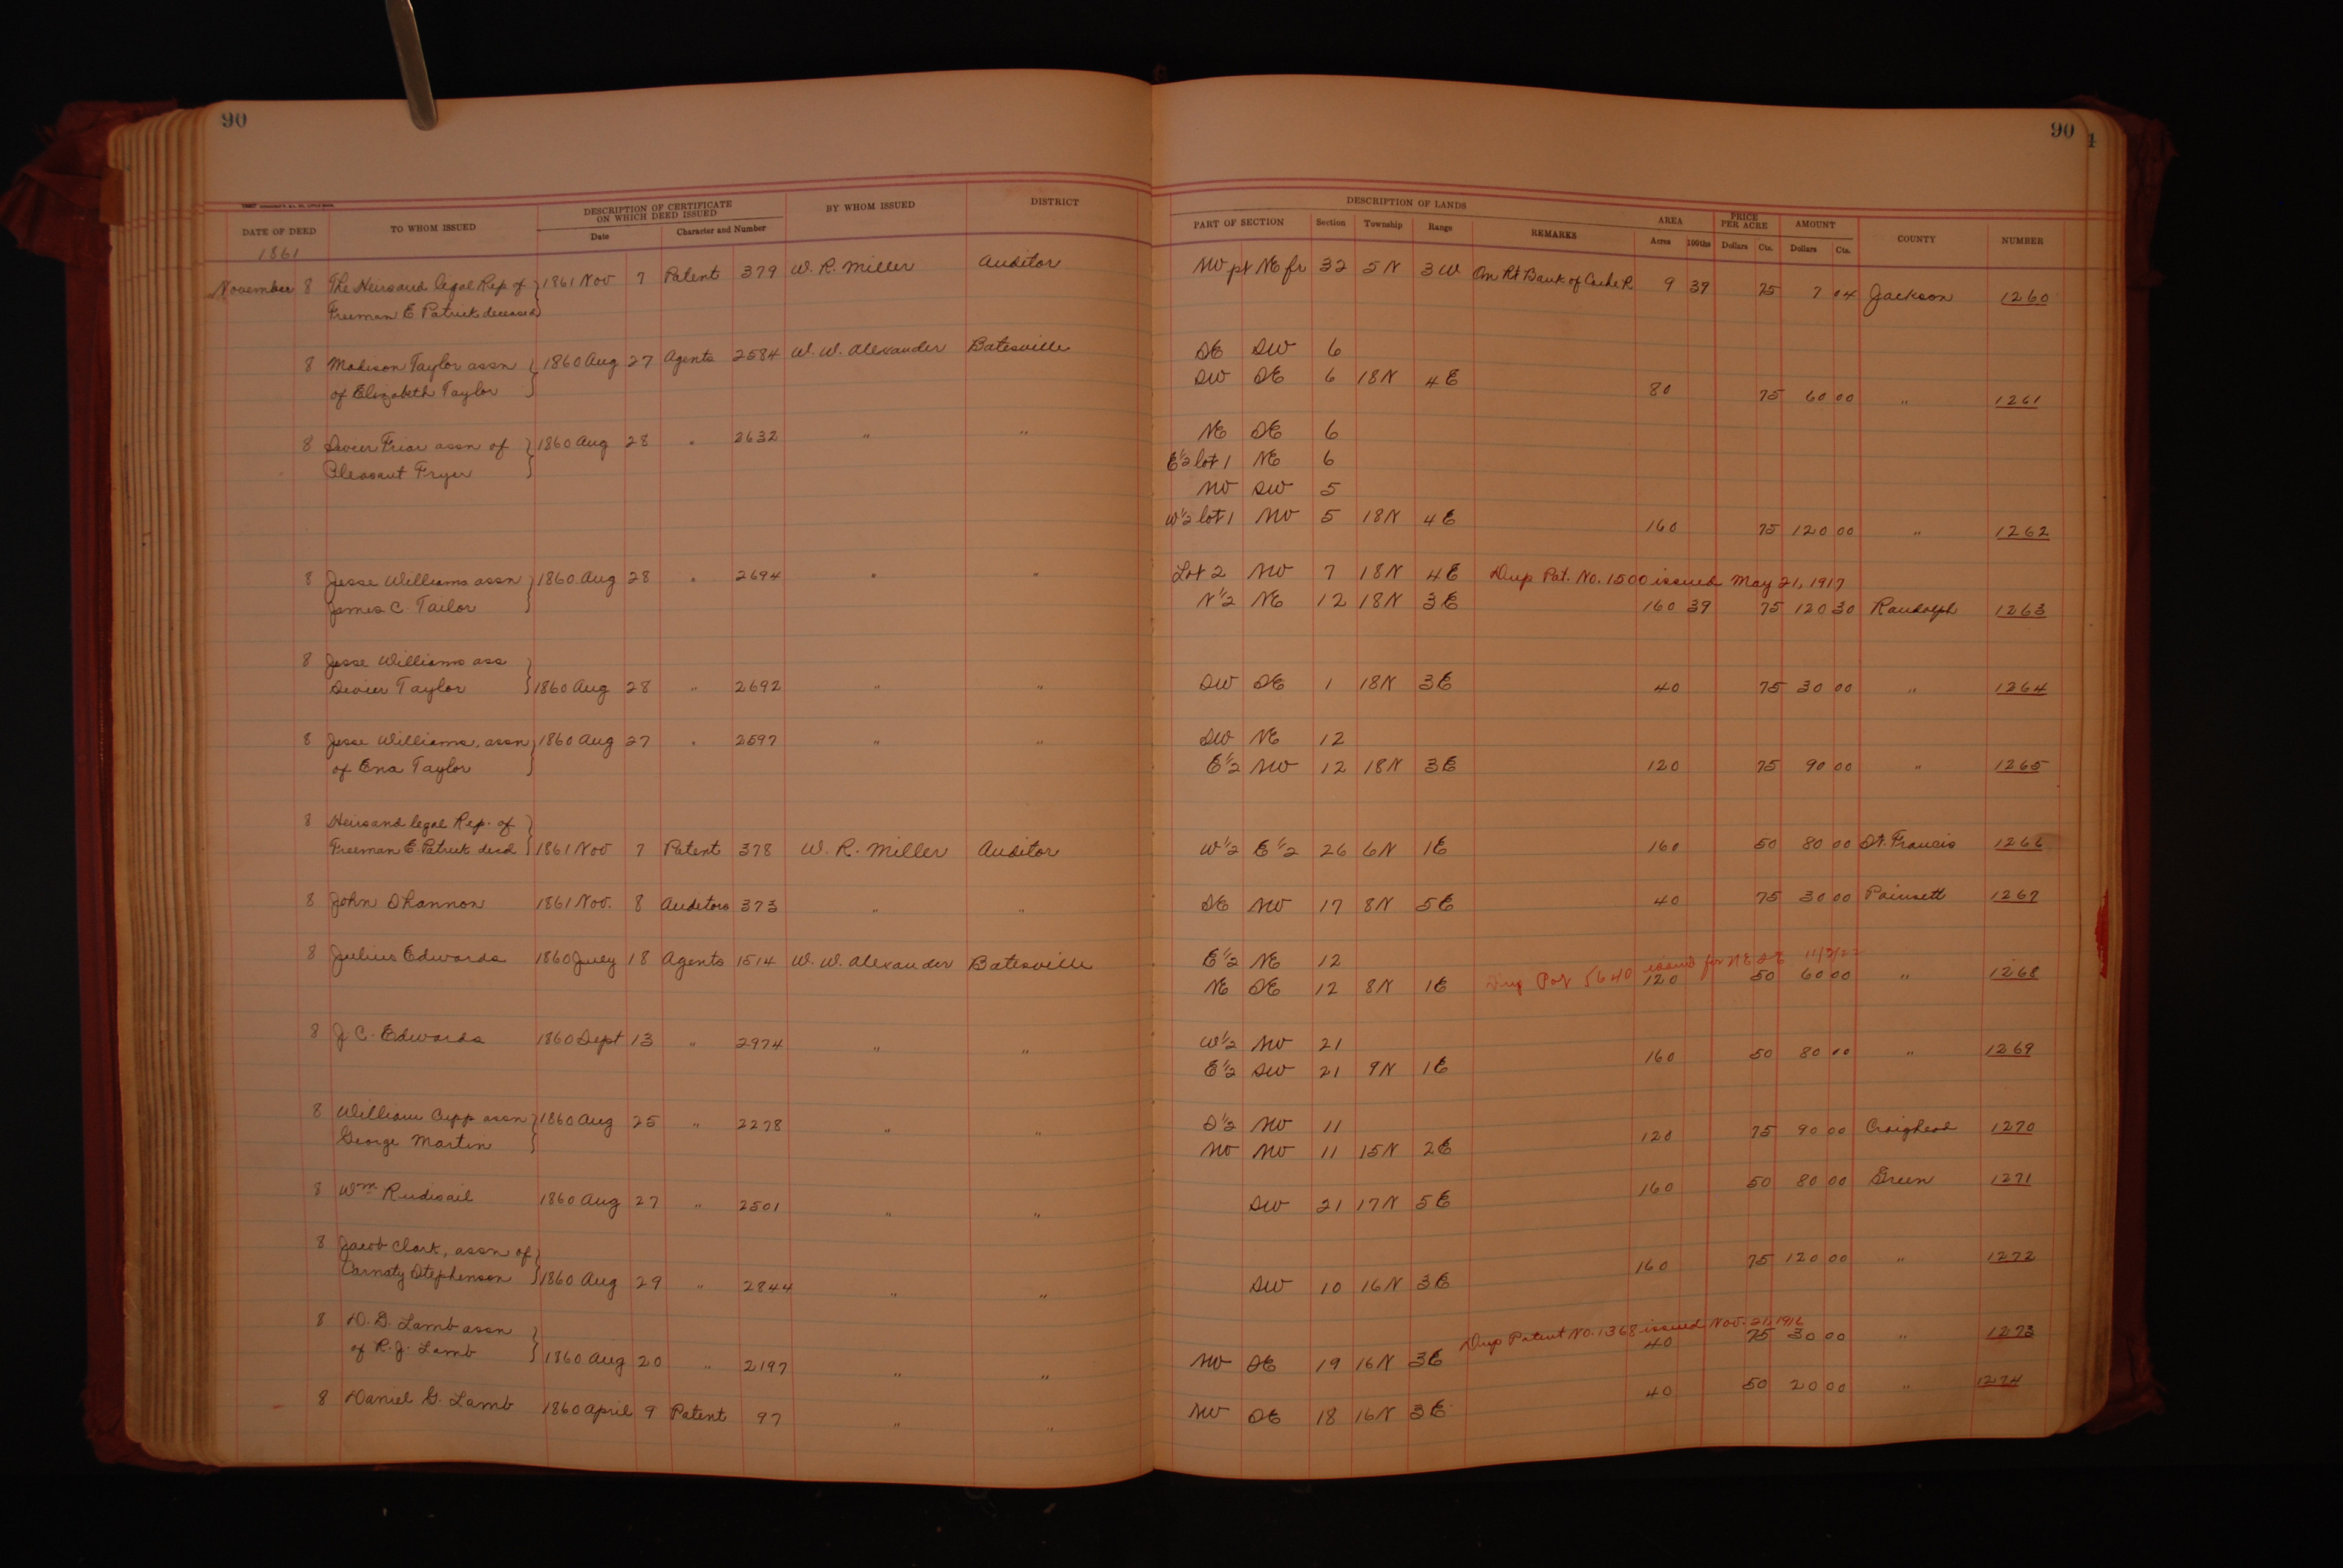 90
90
DATE OF DEED TO WHOM ISSUED DESCRIPTION OF CERTIFICATE ON WHICH DEED ISSUED Date Character and Number BY WHOM ISSUED DISTRICT
DESCRIPTION OF LANDS PART OF SECTION Section Township Range REMARKS AREA Acres 100ths PRICE PER ACRE Dollars Cts. AMOUNT Dollars Cts. COUNTY NUMBER
1861
November 8 The Heirs and legal Rep of } 1861 Nov 7 Patent 379 W. R. Miller Auditor NW pt NE fr 32 5N 3W On Rt Bank of Cache R 9 39 75 7 04 Jackson 1260
Freeman E Patrick deceased
8 Madison Taylor assn } 1860 Aug 27 Agents 2584 W. W. Alexander Batesville SE SW 6
of Elizabeth Taylor SW SE 6 18N 4E 80 75 60 00 " 1261
8 Sevier Friar assn of } 1860 Aug 28 " 2632 " " NE SE 6
Pleasant Fryer E½ lot 1 NE 6
NW SW 5
W½ lot 1 NW 5 18N 4E 160 75 120 00 " 1262
8 Jesse Williams assn } 1860 Aug 28 " 2694 " " Lot 2 NW 7 18N 4E Dup Pat. No. 1500 issued May 21, 1917
James C. Tailor N½ NE 12 18N 3E 160 39 75 120 30 Randolph 1263
8 Jesse Williams ass }
Sevier Taylor 1860 Aug 28 " 2692 " " SW SE 1 18N 3E 40 75 30 00 " 1264
8 Jesse Williams, assn } 1860 Aug 27 " 2597 " " SW NE 12
of Ena Taylor E½ NW 12 18N 3E 120 75 90 00 " 1265
8 Heirs and legal Rep. of }
Freeman E Patrick decd 1861 Nov 7 Patent 378 W. R. Miller Auditor W½ E½ 26 6N 1E 160 50 80 00 St. Francis 1266
8 John Shannon 1861 Nov. 8 Auditors 373 " " SE NW 17 8N 5E 40 75 30 00 Poinsett 1267
8 Julius Edwards 1860 July 18 Agents 1514 W. W. Alexander Batesville E½ NE 12
NE SE 12 8N 1E Dup Pat 5640 issued for NE SE 120 50 60 00 " 1268
8 J. C. Edwards 1860 Sept 13 " 2974 " " W½ NW 21
E½ SW 21 9N 1E 160 50 80 00 " 1269
8 William Cupp assn } 1860 Aug 25 " 2278 " " S½ NW 11
George Martin NW NW 11 15N 2E 120 75 90 00 Craighead 1270
8 Wm Rudisail 1860 Aug 27 " 2501 " " SW 21 17N 5E 160 50 80 00 Green 1271
8 Jacob Clark, assn of }
Stephenson 1860 Aug 29 " 2844 " " SW 10 16N 3E 160 75 120 00 " 1272
8 D. G. Lamb assn } Dup Patent No. 1368 issued Nov. 21, 1916
of R. J. Lamb 1860 Aug 20 " 2197 " " NW SE 19 16N 3E 40 75 30 00 " 1273
8 Daniel G. Lamb 1860 April 9 Patent 97 " " NW SE 18 16N 3E 40 50 20 00 " 1274